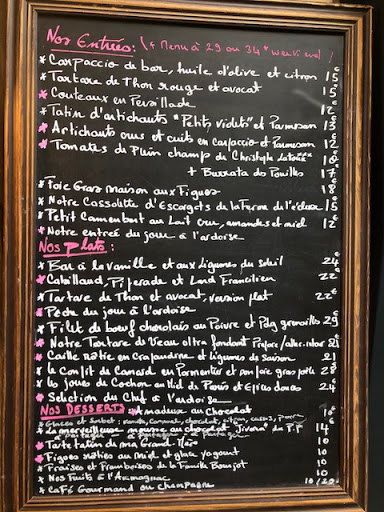 Nos Entrées: (* Menu à 29 ou 34* week end)
* Carpaccio de bar, huile d'olive et citron 15€
* Tartare de Thon rouge et avocat 15€
* Couteaux en Persillade 12€
* Tatin d'artichauts "Petits violets" et Parmesan 13€
* Artichauts crus et cuits en carpaccio et Parmesan 12€
* Tomates de Plein champ de Christophe 10€
+ Burrata des Pouilles 17€
* Foie Gras maison aux Figues 18€
* Notre Cassolette d'Escargots de la Ferme de l'écluse 15€
* Petit Camembert au Lait cru, amandes et miel 12€
* Notre entrée du jour à l'ardoise
Nos Plats:
* Bar à la Vanille et aux Légumes du soleil 24€
* Cabillaud, Piperade et Lard Francilien 22€
* Tartare de Thon et avocat, version plat 22€
* Pêche du jour à l'ardoise
* Filet de bœuf charolais au Poivre et Pdg grenailles 29€
* Notre Tartare de Veau ultra fondant Préparé/aller-retour 21€
* Caille rôtie en crapaudine et légumes de saison 21
* Le confit de Canard en Parmentier et son foie gras poêlé 28
* Les joues de Cochon au Miel de Paris et Epices douces 24
* Sélection du Chef à l'ardoise
Nos Desserts * Amadeus au chocolat 10€
* Glaces et sorbet: vanille, caramel, chocolat, citron, cassis
* La merveilleuse mousse au chocolat "Jivara" de P.P 14€
- à partager - à partager - à partager
* Tarte Tatin de ma Grand Mère 10
* Figues rôties au miel et glace yogourt 10
* Fraises et Framboises de la Famille 10
* Nos Fruits à l'Armagnac 10
* Café Gourmand ou champagne 10/20